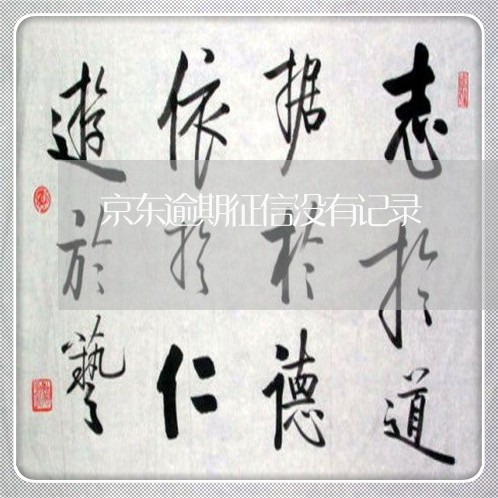 志於道
据於德
依於仁
遊於藝
京东逾期征信没有记录